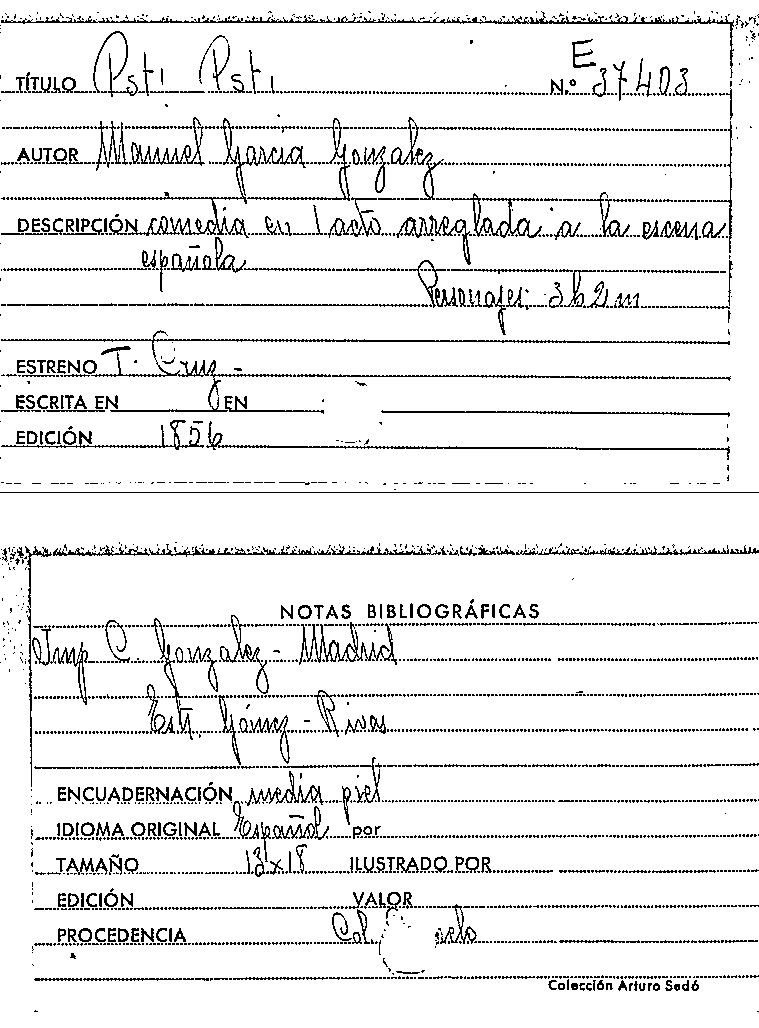 E
TÍTULO Pst! Pst! N.º 37403
AUTOR Manuel García González
DESCRIPCIÓN comedia en 1 acto arreglada a la escena
española
Personajes: 3h 2m
ESTRENO T. Cruz -
ESCRITA EN EN
EDICIÓN 1856
NOTAS BIBLIOGRÁFICAS
Imp C. Gonzalez - Madrid
Estr. Gómez - Rivas
ENCUADERNACIÓN media piel
IDIOMA ORIGINAL Español por
TAMAÑO 13x18 ILUSTRADO POR
EDICIÓN VALOR
PROCEDENCIA Col.
Colección Arturo Sedó